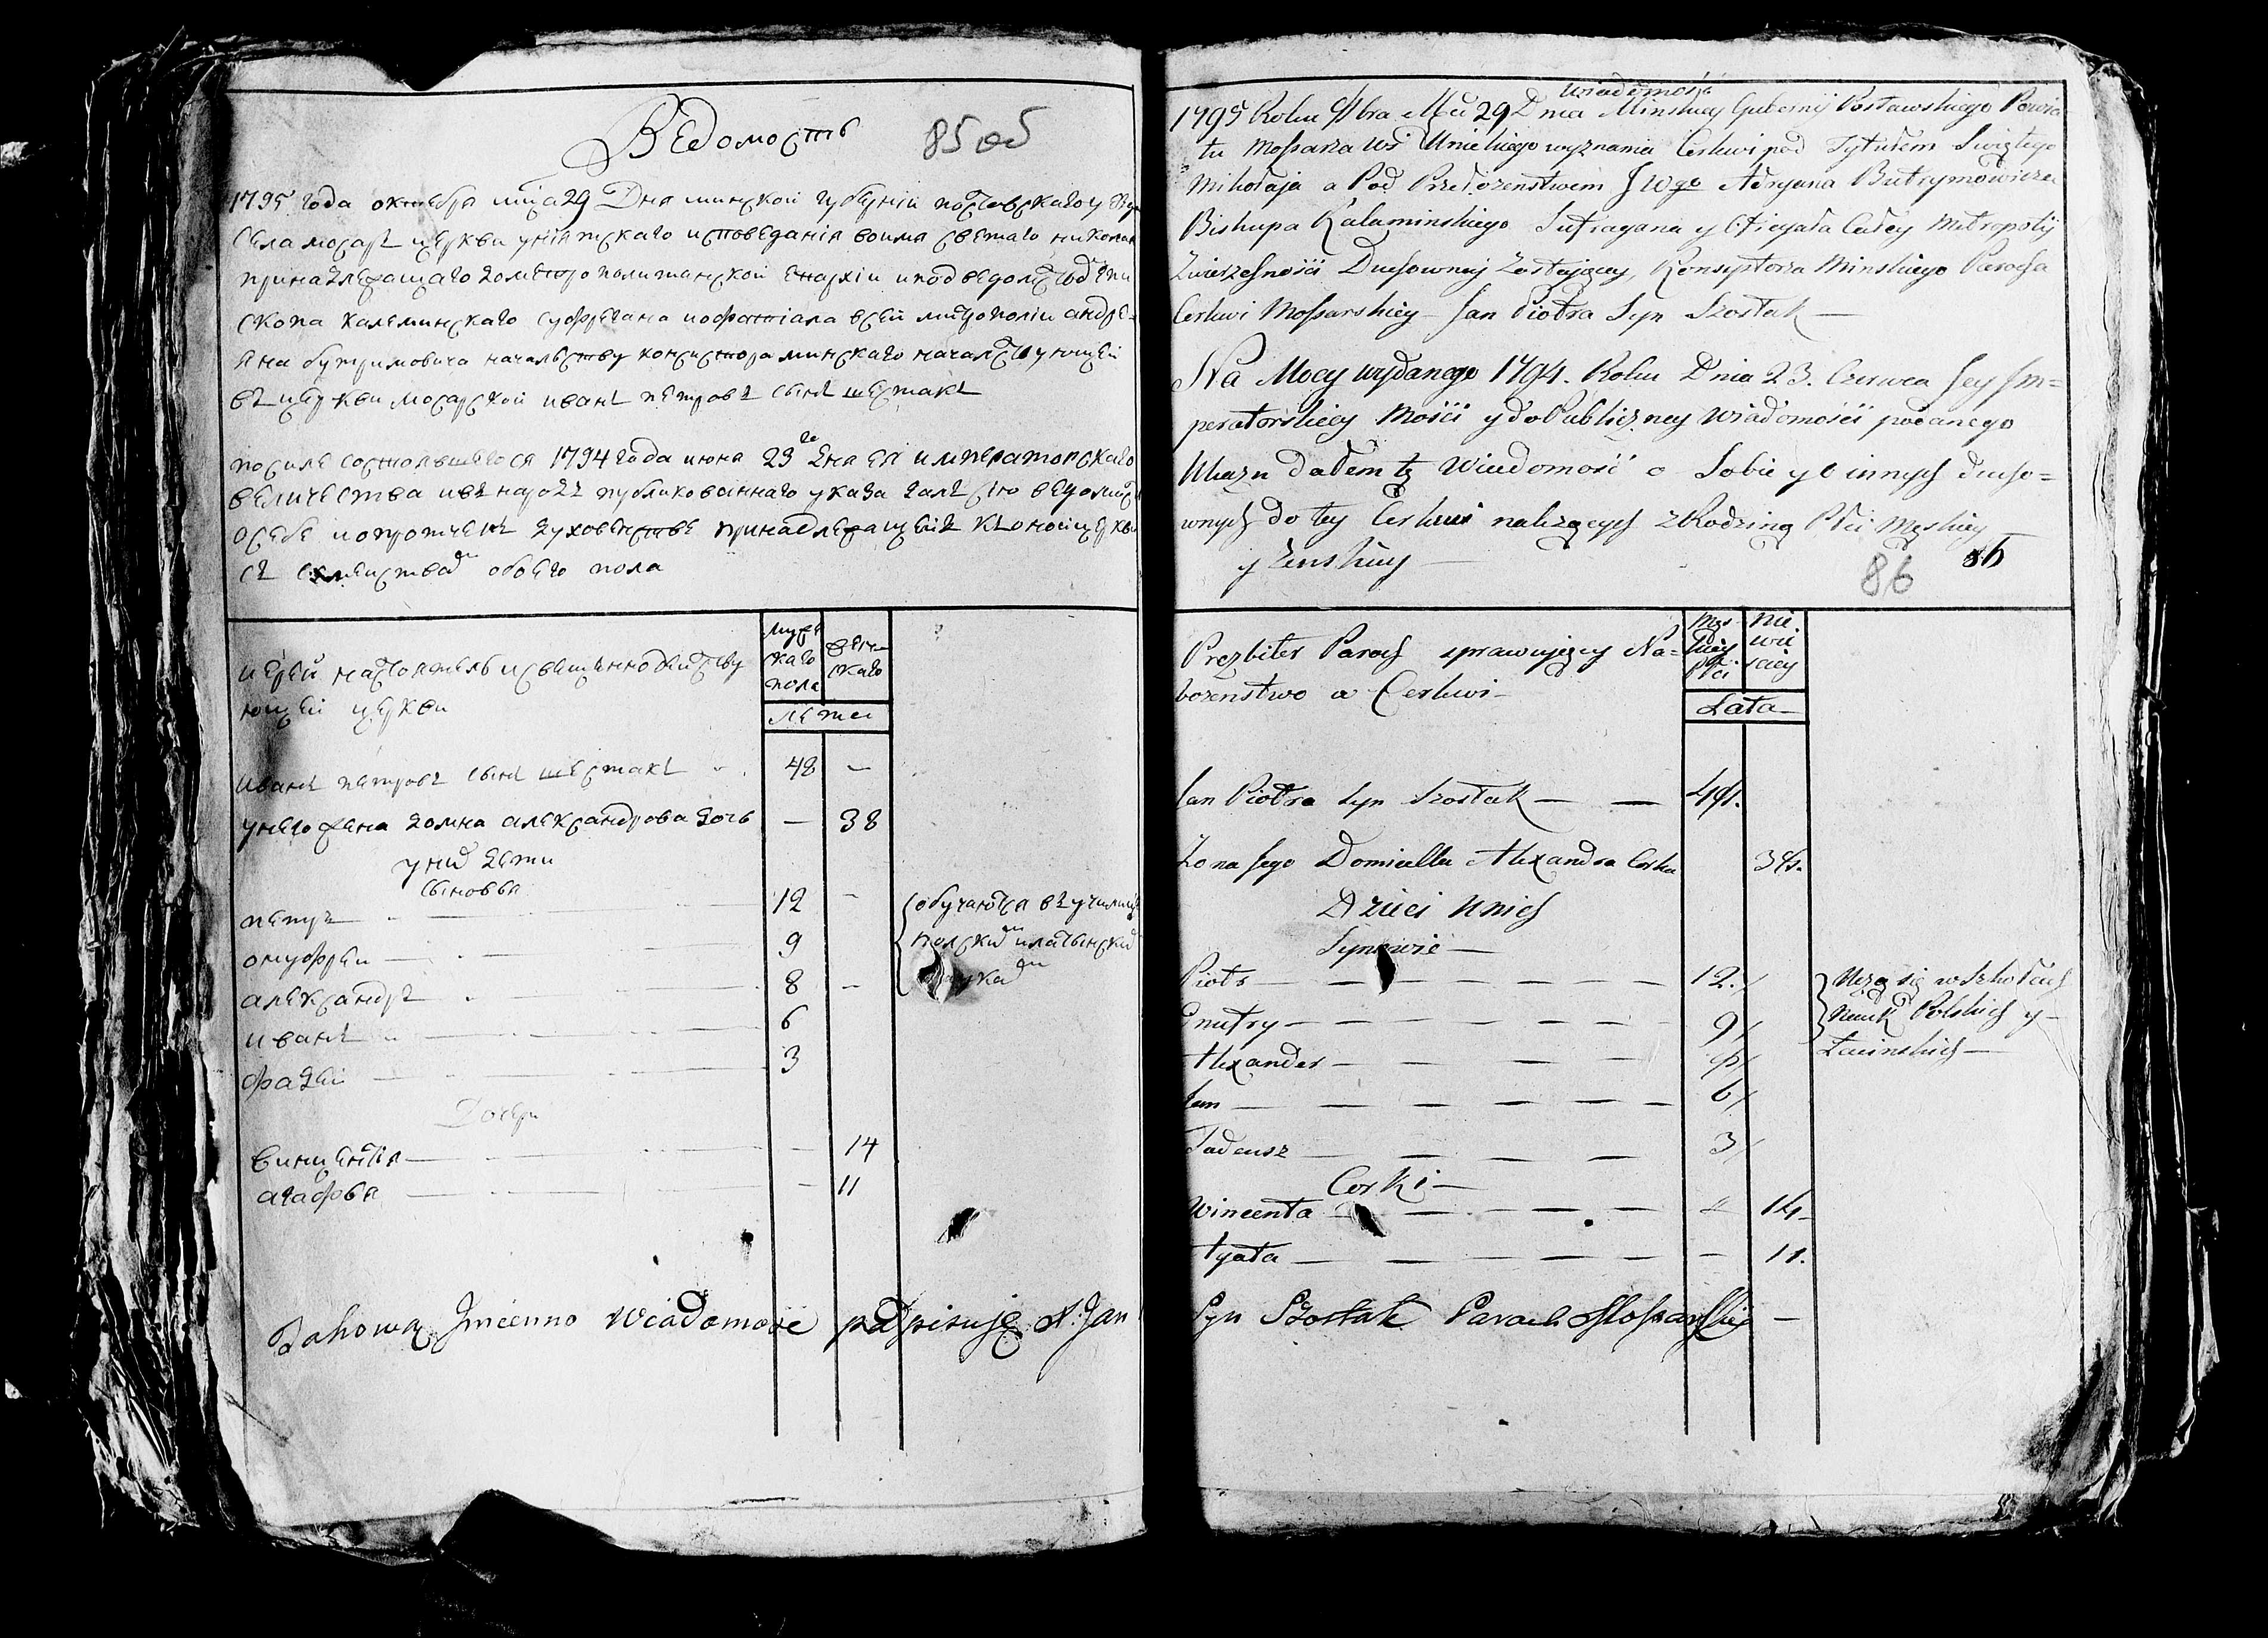 Ведомость
85 об
1795 года октебра мца 29 Дня минской губернiи поставскаго у
села мосарь церкви унiятскаго исповеданiя воимя светаго николая
приналежащаго к метрополитанской епархiи и под ведомством епи
скопа калеминскаго суфрагана иофитiала всей митрополiи андре-
яна бутримовича началству консистора минскаго началствующей
въ церкви мосарской иванъ петровъ сынъ шестакъ
посиле состоявшегося 1794 года июня 23го дня ея императорскаго
величества ивънародъ публикованнаго указа далъ сию ведомост
осебе ипротчемъ духовенстве приналежащемъ к оной церкви
съ семейством обоего пола
иерей настоятель исвященнодейству
ющей церкви
мужескаго пола
женскаго
лета
иванъ петровъ сынъ шестакъ 48 —
унего жена домна александрова дочь — 38
у них дети
сыновья
петръ 12 —
онуфрей 9
александръ 8 —
иванъ 6
фадей 3
обучаются въ училищ
полских и латынских
науках
Дочери
винцентiя — 14
агафья — 11
Takową Jmienno Wiadomość podpisuję X: Jan
Wiadomość
1795 Roku 8bra Mca 29 Dnia Minskiey Gubernij Postawskiego Powia
tu Mossarza Wsi Unickiego wyznania Cerkwi pod Tytułem Swiętego
Mikołaja a Pod Przełożenstwem J W go Adryana Butrymowicza
Biskupa Kalaminskiego Sufragana y Oficyała Całey Metropolij
Zwierzchności Duchowney Zostaiącey, Konsystorza Minskiego Parocha
Cerkwi Mossarskiey Jan Piotra Syn Szostak —
Na Mocy wydanego 1794. Roku Dnia 23. Czerwca Jey Jm=
peratorskiey Mości y do Publiczney Wiadomości podanego
Ukazu dałem tę Wiadomość o Sobie y o innych ducho=
wnych do tey Cerkwi należących z Rodziną Płci Męskiey
y Żenskiey —
86
86
Prezbiter Paroch sprawujący Na=
bożenstwo w Cerkwi —
Męskiey Płci
Niewieściey
Lata —
Jan Piotra Syn Szostak — — 48.
Żona Jego Domicella Alexandra Corka 38.
Dzieci Unich
Synowie —
Piotr — — — — — — 12.
Onufry — — — — — — 9
Alexander — — — — — 8
Jan — — — — — — 6
Tadeusz — — — — — 3
Uczą się w Szkołach
Nauk Polskich y —
Łacinskich —
Corki —
Wincenta — — — — — 14
Agata — — — — — — 11.
Syn Szostak Paroch Mossarski —